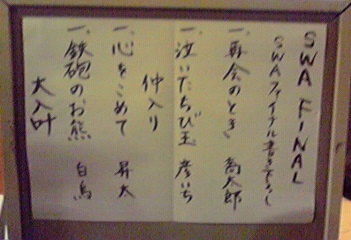 SWA FINAL
SWAファイナル書き下ろし
一、再会のとき 喬太郎
一、泣いたちび玉 彦いち
仲入り
一、心をこめて 昇太
一、鉄砲のお熊 白鳥
大入叶